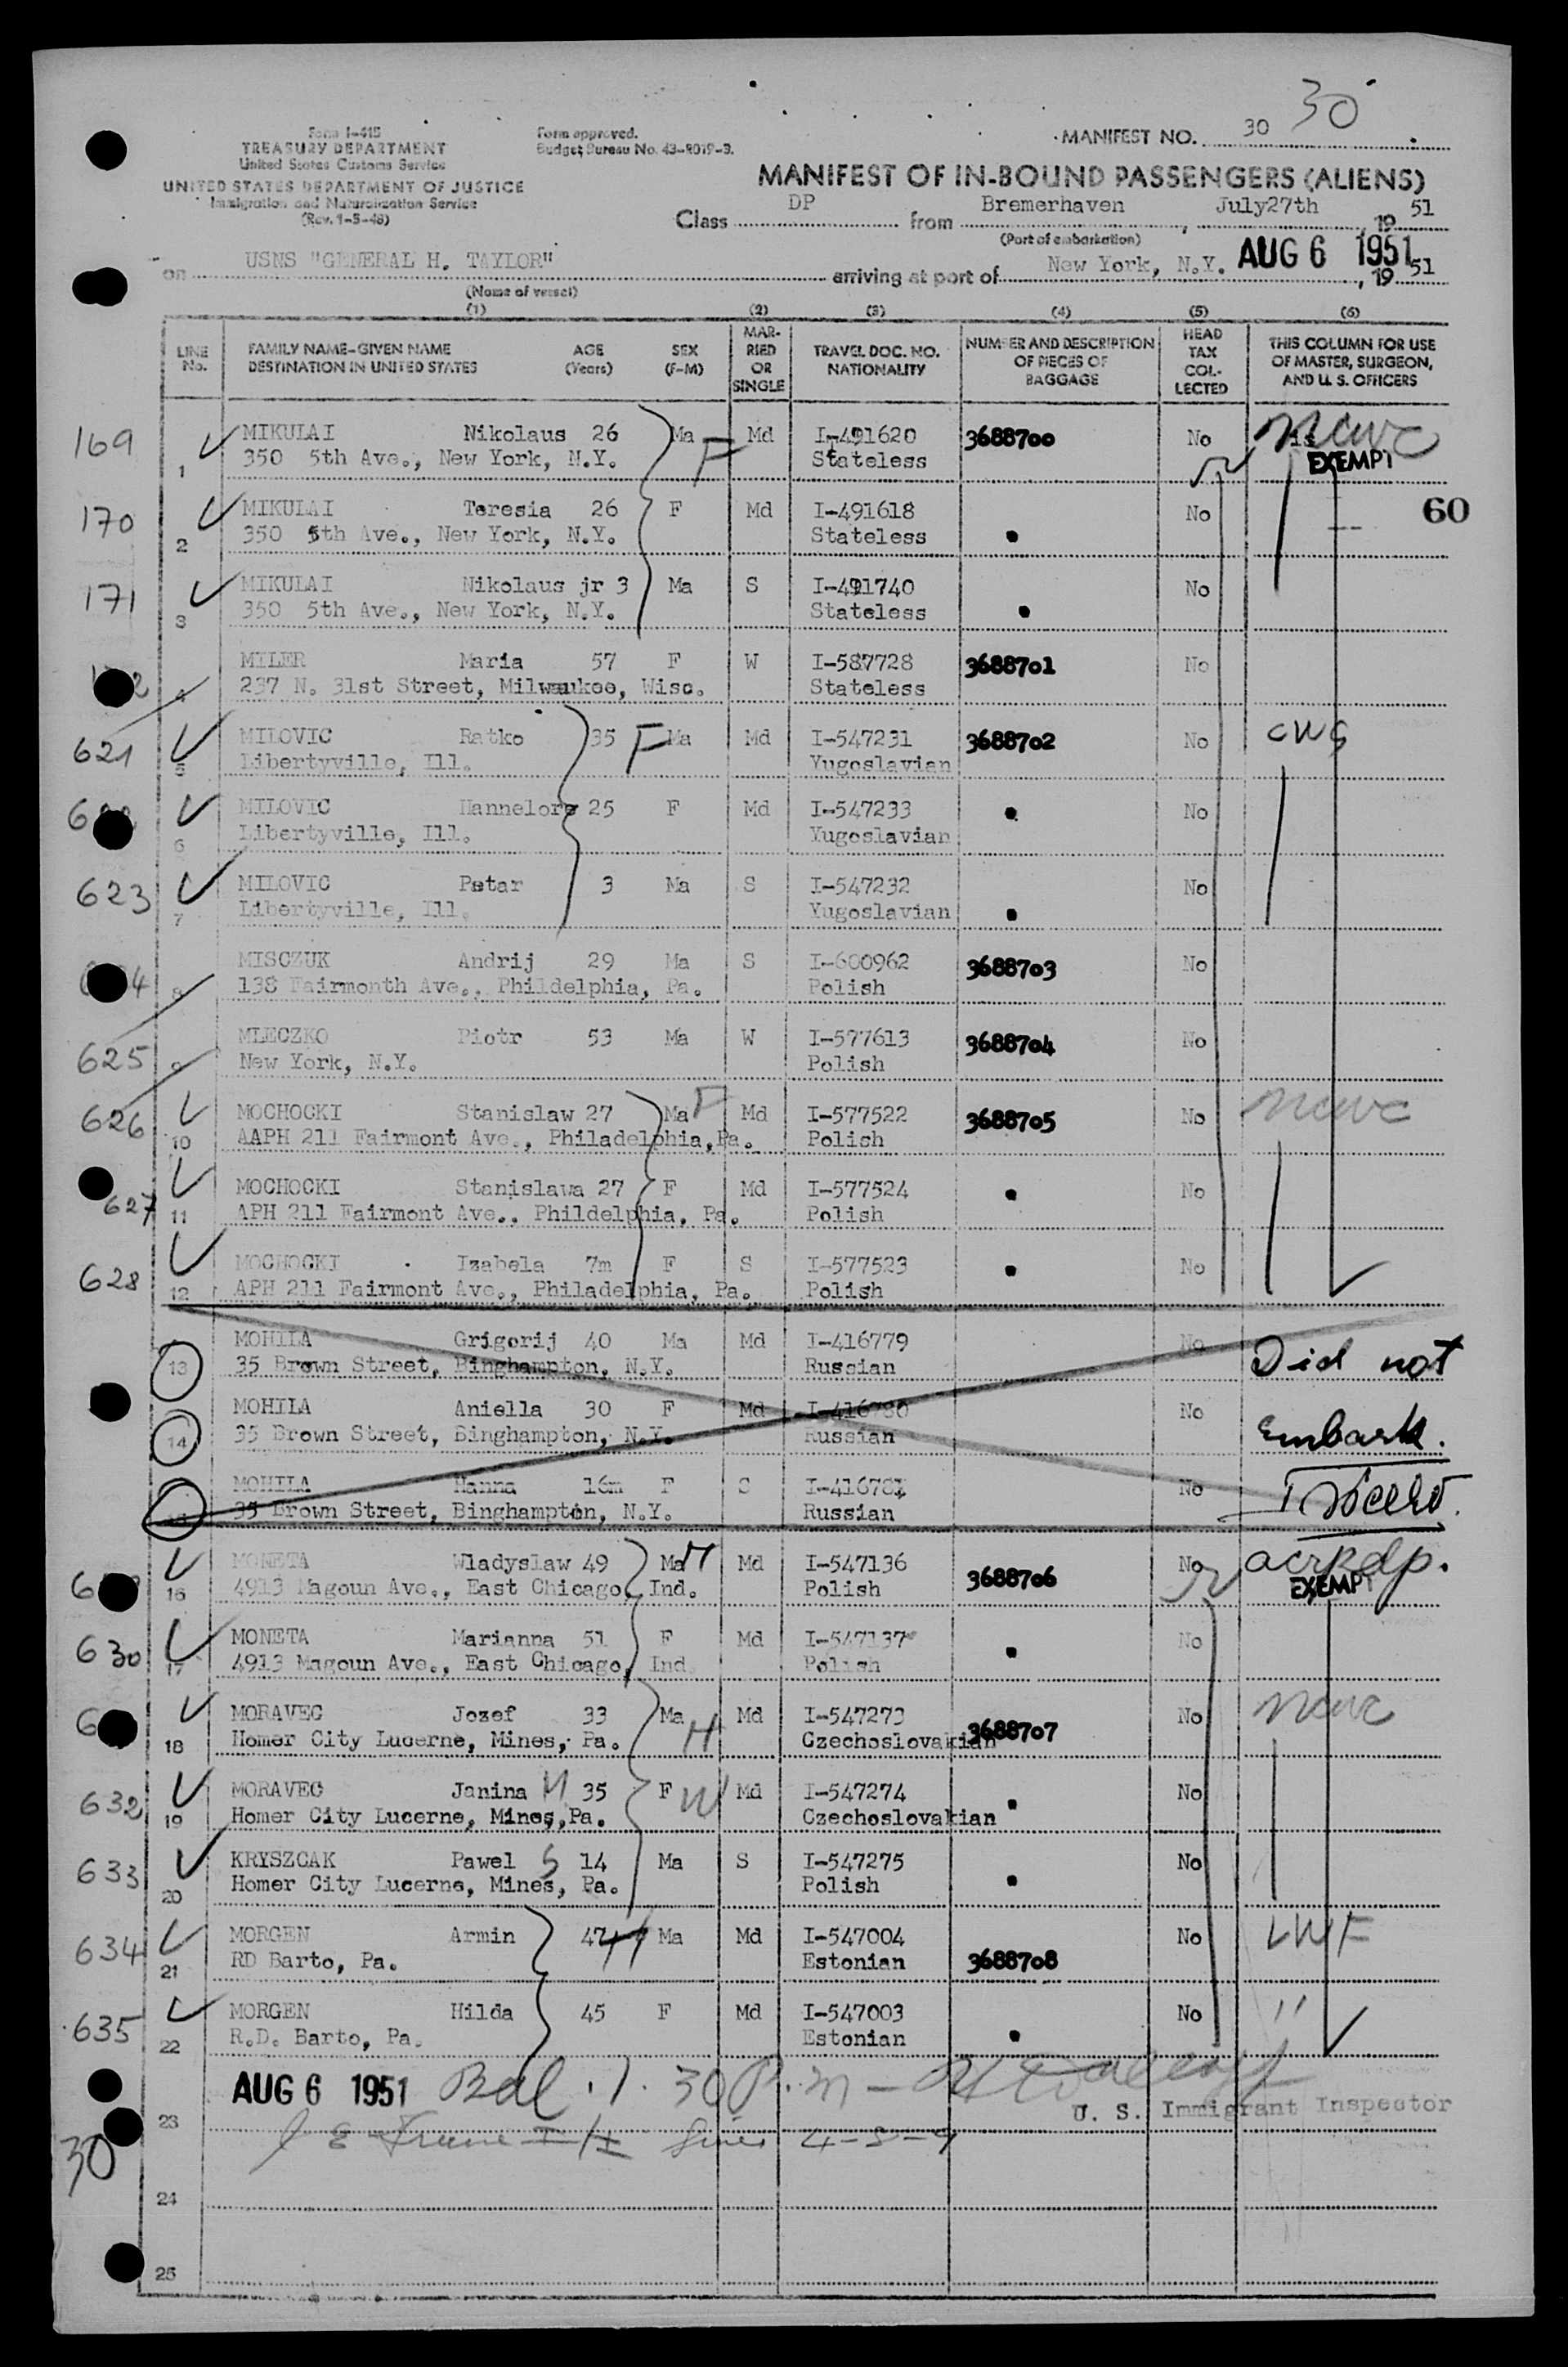 30
Form I-415
TREASURY DEPARTMENT
United States Customs Service
UNITED STATES DEPARTMENT OF JUSTICE
Immigration and Naturalization Service
(Rev. 1-5-48)
Form approved.
Budget Bureau No. 43-R019-3.
MANIFEST NO. 30
MANIFEST OF IN-BOUND PASSENGERS (ALIENS)
Class DP from Bremerhaven, July27th, 1951
(Port of embarkation)
on USNS "GENERAL H. TAYLOR" arriving at port of New York, N.Y. AUG 6 1951, 1951
(Name of vessel)
(1) (2) (3) (4) (5) (6)
LINE No. FAMILY NAME-GIVEN NAME DESTINATION IN UNITED STATES AGE (Years) SEX (F-M) MARRIED OR SINGLE TRAVEL DOC. NO. NATIONALITY NUMBER AND DESCRIPTION OF PIECES OF BAGGAGE HEAD TAX COLLECTED THIS COLUMN FOR USE OF MASTER, SURGEON, AND U. S. OFFICERS
169 1 MIKULAI Nikolaus 26 Ma F Md I-491620 3688700 No ncwc
350 5th Ave., New York, N.Y. Stateless EXEMPT
170 2 MIKULAI Teresia 26 F Md I-491618 No 60
350 5th Ave., New York, N.Y. Stateless
171 3 MIKULAI Nikolaus jr 3 Ma S I-491740 No
350 5th Ave., New York, N.Y. Stateless
4 MILER Maria 57 F W I-587728 3688701 No
237 N. 31st Street, Milwaukee, Wisc. Stateless
621 5 MILOVIC Ratko 35 F Ma Md I-547231 3688702 No CWS
Libertyville, Ill. Yugoslavian
6 MILOVIC Hannelore 25 F Md I-547233 No
Libertyville, Ill. Yugoslavian
623 7 MILOVIC Petar 3 Ma S I-547232 No
Libertyville, Ill. Yugoslavian
8 MISCZUK Andrij 29 Ma S I-600962 3688703 No
138 Fairmonth Ave., Phildelphia, Pa. Polish
625 9 MLECZKO Piotr 53 Ma W I-577613 3688704 No
New York, N.Y. Polish
626 10 MOCHOCKI Stanislaw 27 Ma F Md I-577522 3688705 No ncwc
AAPH 211 Fairmont Ave., Philadelphia,Pa. Polish
627 11 MOCHOCKI Stanislawa 27 F Md I-577524 No
APH 211 Fairmont Ave., Phildelphia, Pa. Polish
628 12 MOCHOCKI Izabela 7m F S I-577523 No
APH 211 Fairmont Ave., Philadelphia, Pa. Polish
13 MOHILA Grigorij 40 Ma Md I-416779 No Did not
35 Brown Street, Binghampton, N.Y. Russian
14 MOHILA Aniella 30 F Md I-416780 No Embark.
35 Brown Street, Binghampton, N.Y. Russian
15 MOHILA Hanna 16m F S I-416781 No
35 Brown Street, Binghampton, N.Y. Russian
16 MONETA Wladyslaw 49 Ma H Md I-547136 3688706 No
4913 Magoun Ave., East Chicago, Ind. Polish EXEMPT
630 17 MONETA Marianna 51 F Md I-547137 No
4913 Magoun Ave., East Chicago, Ind. Polish
18 MORAVEC Jozef 33 Ma H Md I-547273 3688707 No ncwc
Homer City Lucerne, Mines, Pa. Czechoslovakian
632 19 MORAVEC Janina 35 F W Md I-547274 No
Homer City Lucerne, Mines,Pa. Czechoslovakian
633 20 KRYSZCAK Pawel S 14 Ma S I-547275 No
Homer City Lucerne, Mines, Pa. Polish
634 21 MORGEN Armin 47 H Ma Md I-547004 3688708 No LWF
RD Barto, Pa. Estonian
635 22 MORGEN Hilda 45 F Md I-547003 No "
R.D. Barto, Pa. Estonian
AUG 6 1951 1.30 P.m
23 U. S. Immigrant Inspector
30
24
25